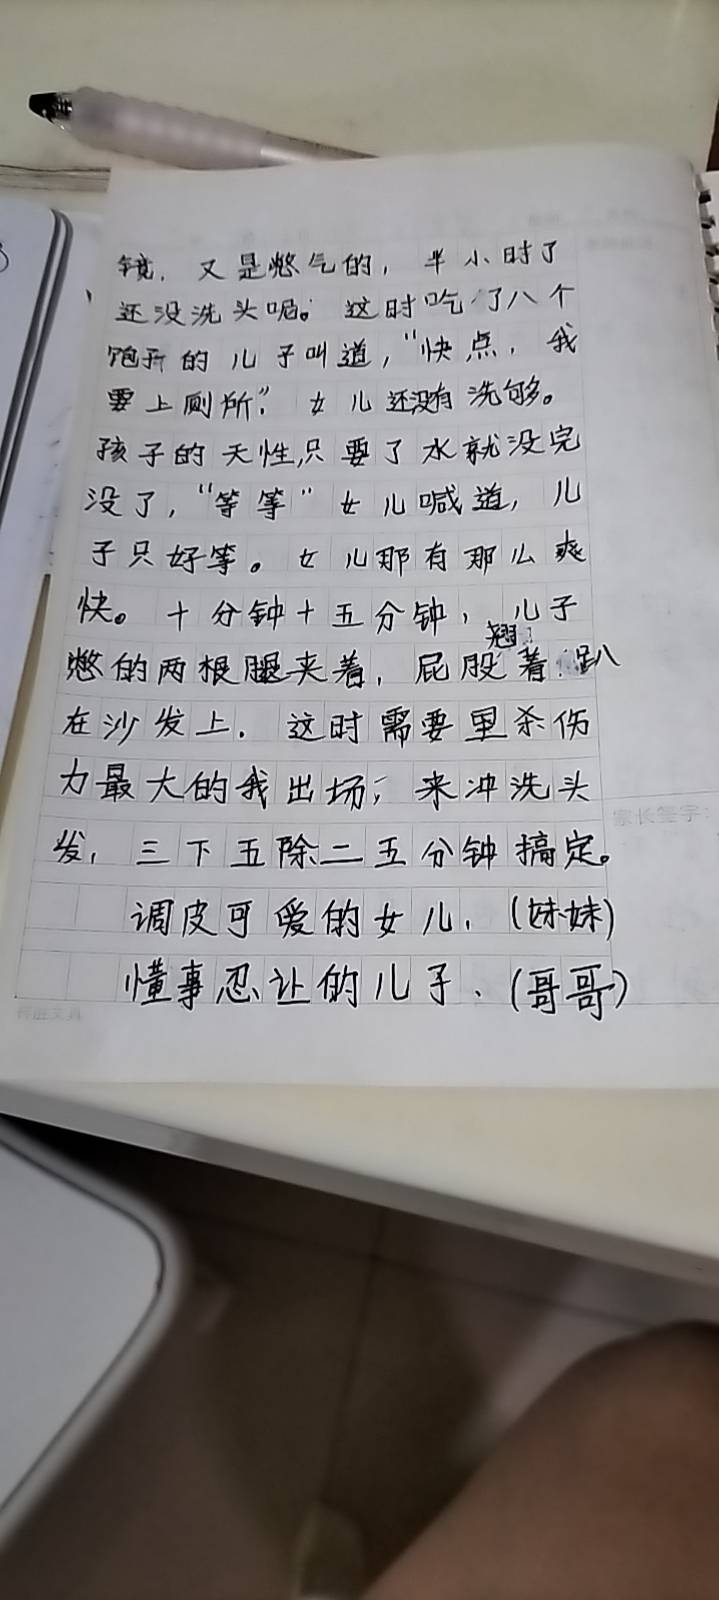 镜，又是憋气的，半小时了
还没洗头呢。这时吃了八个
的儿子叫道，“快点，我
要上厕所”。女儿还没有洗够。
孩子的天性，只要了水就没完
没了，“等等”女儿喊道，儿
子只好等。女儿那有那么爽
快。十分钟十五分钟，儿子
憋的两根腿夹着，屁股翘着趴
在沙发上。这时需要里杀伤
力最大的我出场，来冲洗头
发，三下五除二五分钟搞定。
调皮可爱的女儿，（妹妹）
懂事忍让的儿子、（哥哥）
家长签字：